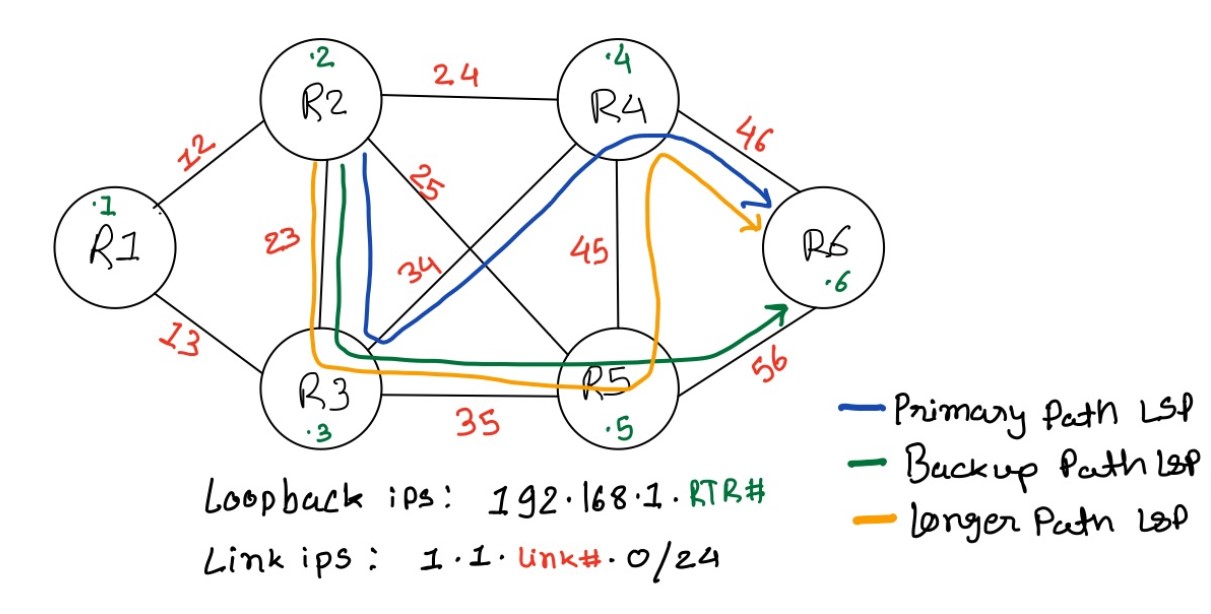 ·2
R2
24
·4
R4
46
12
25
·1
R1
23
34
45
R6
·6
13
R3
·3
35
R5
·5
56
Primary Path LSP
Backup Path LSP
Longer Path LSP
Loopback ips: 192.168.1.RTR#
Link ips: 1.1.link#.0/24